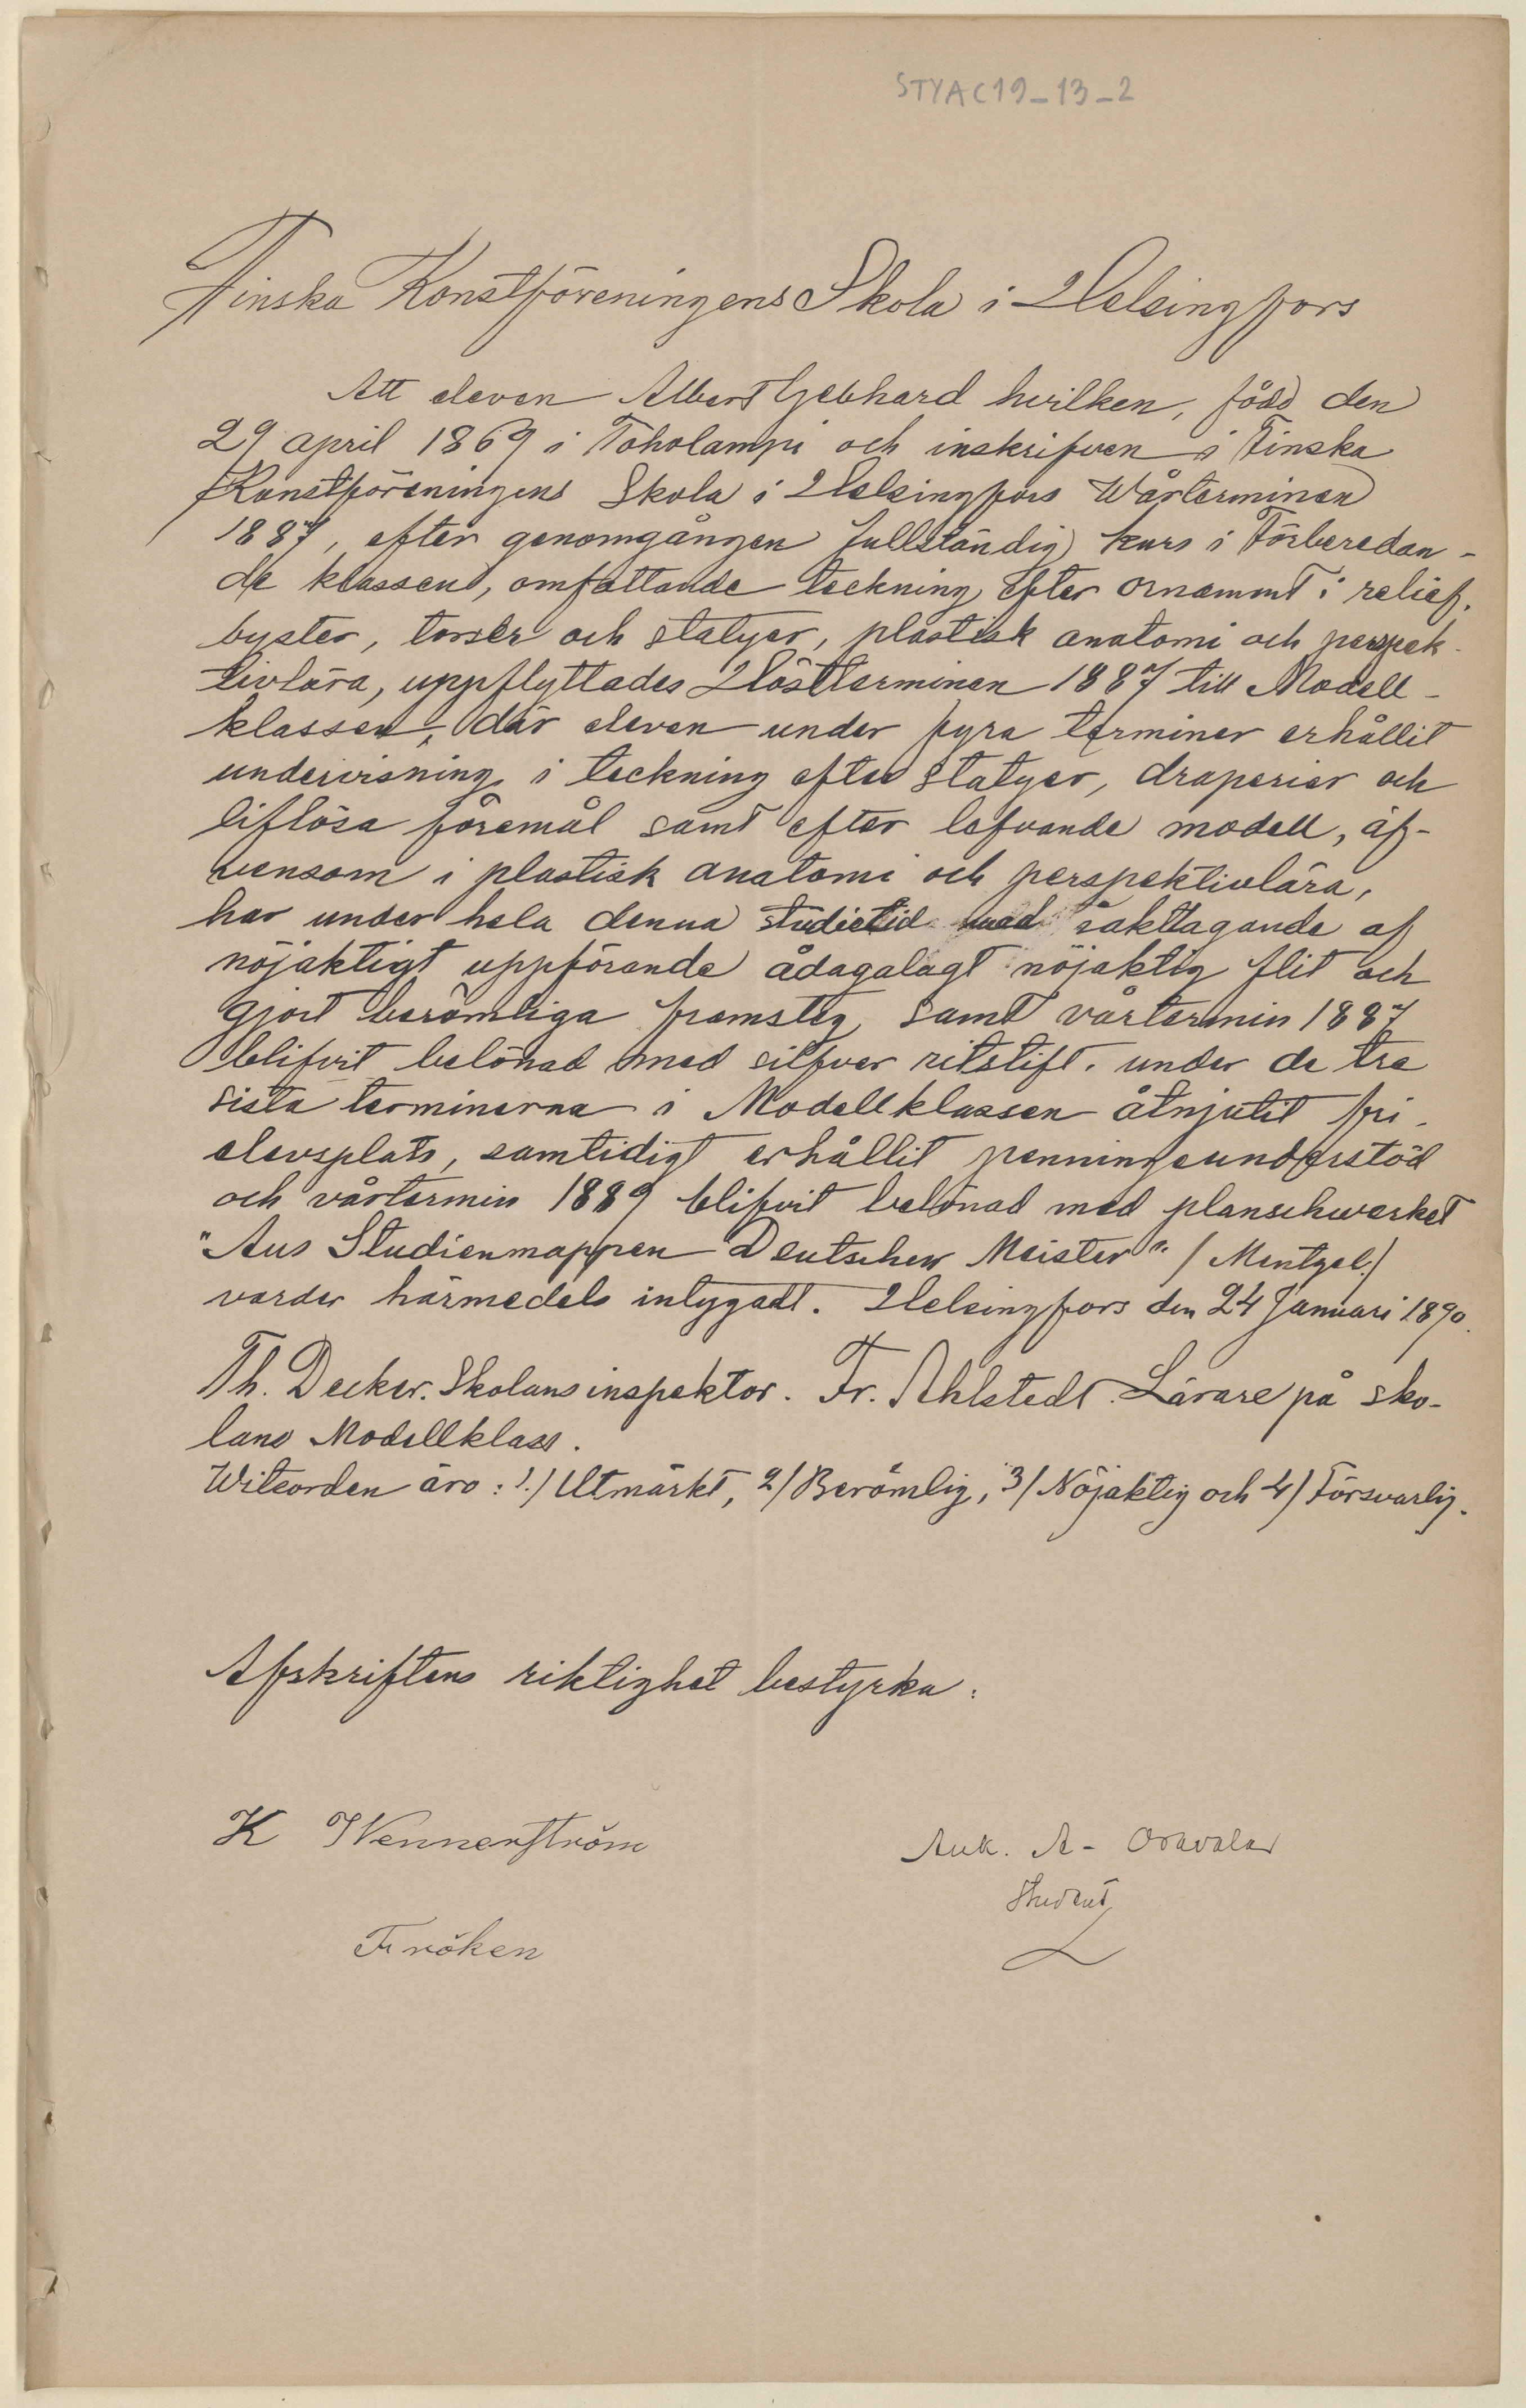 STYAC19-13-2
Finska Konstföreningens Skola i Helsingfors
Att eleven Albert Gebhard hvilken, född den
29 april 1869 i Toholampi och inskrifven i Finska
Konstföreningens Skola i Helsingfors Wårterminen
1887, efter genomgången fullständig kurs i Förberedan-
de klassen, omfattande teckning efter ornament i relief,
byster, torser och statyer, plastisk anatomi och perspek-
tivlära, uppflyttades Höstterminen 1887 till Modell-
klassen, där eleven under fyra terminer erhållit
undervisning i teckning efter statyer, draperier och
liflösa föremål samt efter lefvande modell, äf-
vensom i plastisk anatomi och perspektivlära,
har under hela denna studietid med iakttagande af
nöjaktigt uppförande ådagalagt nöjaktig flit och
gjort berömliga framsteg samt vårtermin 1887
blifvit belönad med silfver ritstift. under de tre
sista terminerna i Modellklassen åtnjutit fri-
elevsplats, samtidigt erhållit penningeunderstöd
och vårtermin 1889 blifvit belönad med planschverket
"Aus Studienmappen Deutscher Meister". / Mentzel./
varder härmedels intygadt. Helsingfors den 24 Januari 1890.
Th. Decker. Skolans inspektor. Fr. Ahlstedt. Lärare på sko-
lans Modellklass.
Witsorden äro: 1./ Utmärkt, 2/ Berömlig, 3/ Nöjaktig och 4/ Försvarlig.
Afskriftens riktighet bestyrka:
K Wennerström
Auk. A-
Student
Fröken